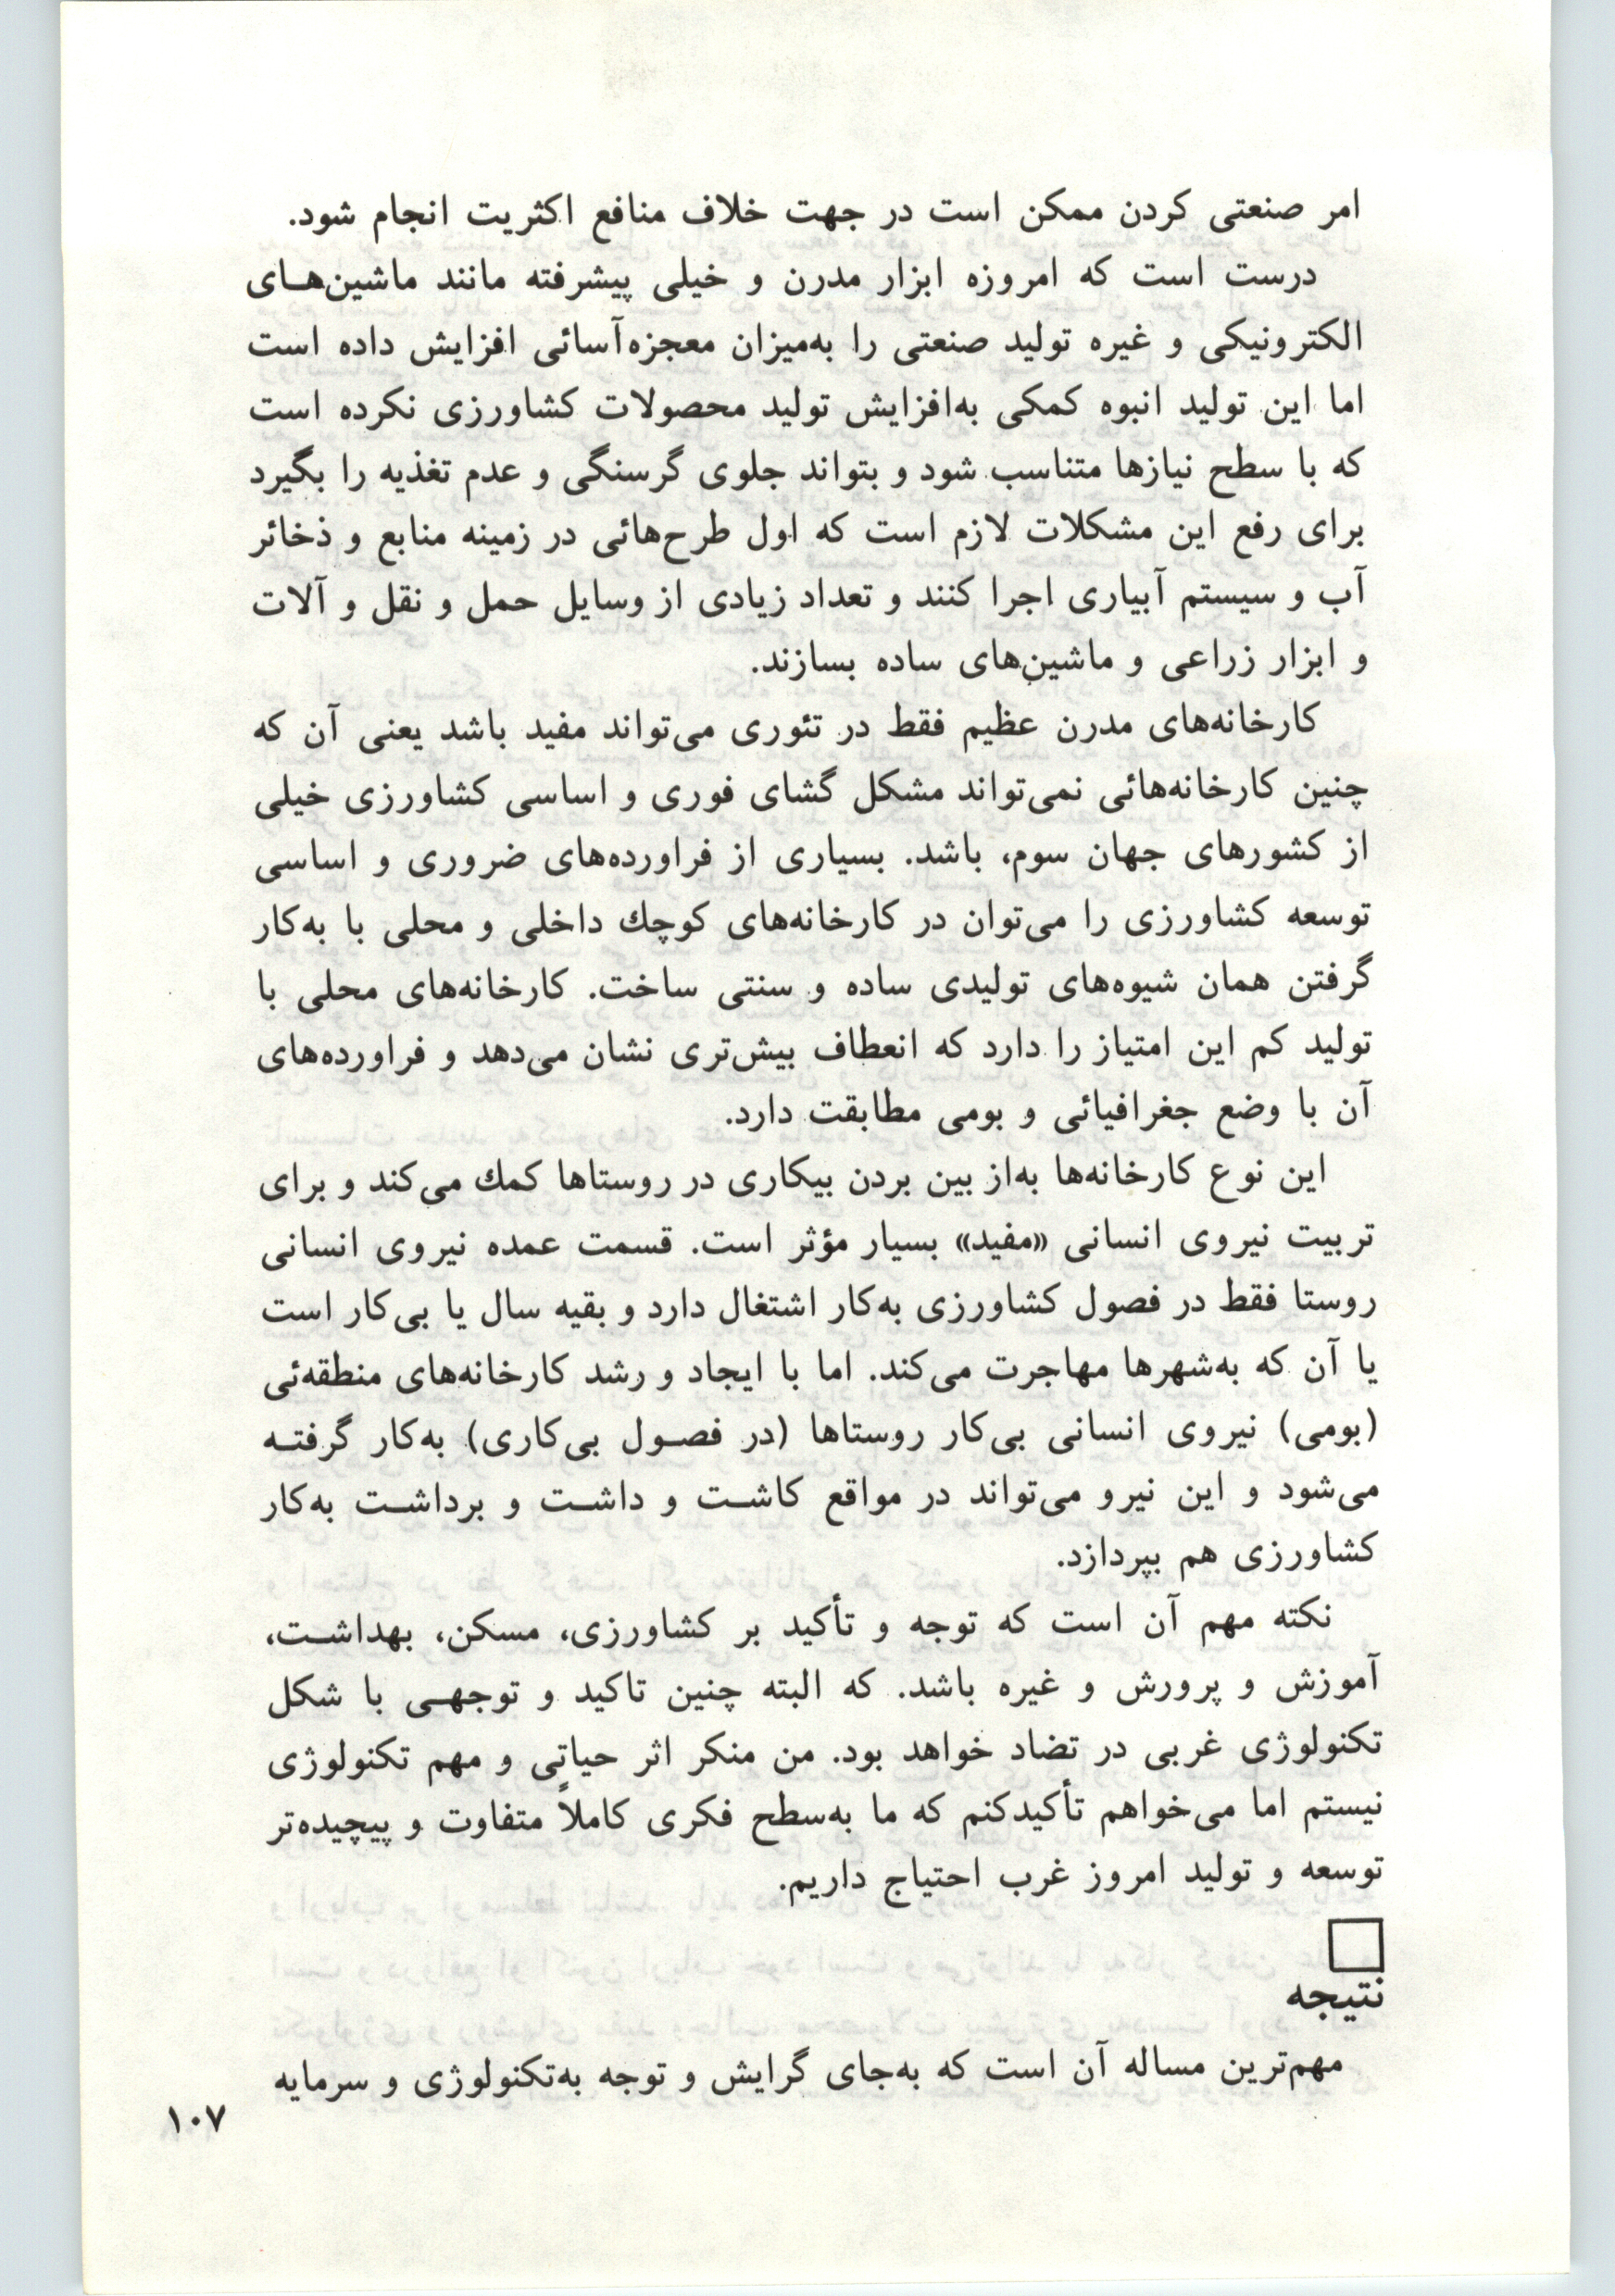 امر صنعتی کردن ممکن است در جهت خلاف منافع اکثریت انجام شود.
درست است که امروزه ابزار مدرن و خیلی پیشرفته مانند ماشین‌هـای
الکترونیکی و غیره تولید صنعتی را به‌میزان معجزه‌آسائی افزایش داده است
اما این تولید انبوه کمکی به‌افزایش تولید محصولات کشاورزی نکرده است
که با سطح نیازها متناسب شود و بتواند جلوی گرسنگی و عدم تغذیه را بگیرد
برای رفع این مشکلات لازم است که اول طرح‌هائی در زمینه منابع و ذخائر
آب و سیستم آبیاری اجرا کنند و تعداد زیادی از وسایل حمل و نقل و آلات
و ابزار زراعی و ماشین‌های ساده بسازند.
کارخانه‌های مدرن عظیم فقط در تئوری می‌تواند مفید باشد یعنی آن که
چنین کارخانه‌هائی نمی‌تواند مشکل گشای فوری و اساسی کشاورزی خیلی
از کشورهای جهان سوم، باشد. بسیاری از فراورده‌های ضروری و اساسی
توسعه کشاورزی را می‌توان در کارخانه‌های کوچك داخلی و محلی با به‌کار
گرفتن همان شیوه‌های تولیدی ساده و سنتی ساخت. کارخانه‌های محلی با
تولید کم این امتیاز را دارد که انعطاف بیش‌تری نشان می‌دهد و فراورده‌های
آن با وضع جغرافیائی و بومی مطابقت دارد.
این نوع کارخانه‌ها به‌از بین بردن بیکاری در روستاها کمك می‌کند و برای
تربیت نیروی انسانی «مفید» بسیار مؤثر است. قسمت عمده نیروی انسانی
روستا فقط در فصول کشاورزی به‌کار اشتغال دارد و بقیه سال یا بی‌کار است
یا آن که به‌شهرها مهاجرت می‌کند. اما با ایجاد و رشد کارخانه‌های منطقه‌ئی
(بومی) نیروی انسانی بی‌کار روستاها (در فصـول بی‌کاری) به‌کار گرفتـه
می‌شود و این نیرو می‌تواند در مواقع کاشـت و داشـت و برداشـت به‌کار
کشاورزی هم بپردازد.
نکته مهم آن است که توجه و تأکید بر کشاورزی، مسکن، بهداشـت،
آموزش و پرورش و غیره باشد. که البته چنین تاکید و توجهـی با شکل
تکنولوژی غربی در تضاد خواهد بود. من منکر اثر حیاتی و مهم تکنولوژی
نیستم اما می‌خواهم تأکیدکنم که ما به‌سطح فکری کاملاً متفاوت و پیچیده‌تر
توسعه و تولید امروز غرب احتیاج داریم.
نتیجه
مهم‌ترین مساله آن است که به‌جای گرایش و توجه به‌تکنولوژی و سرمایه
۱۰۷